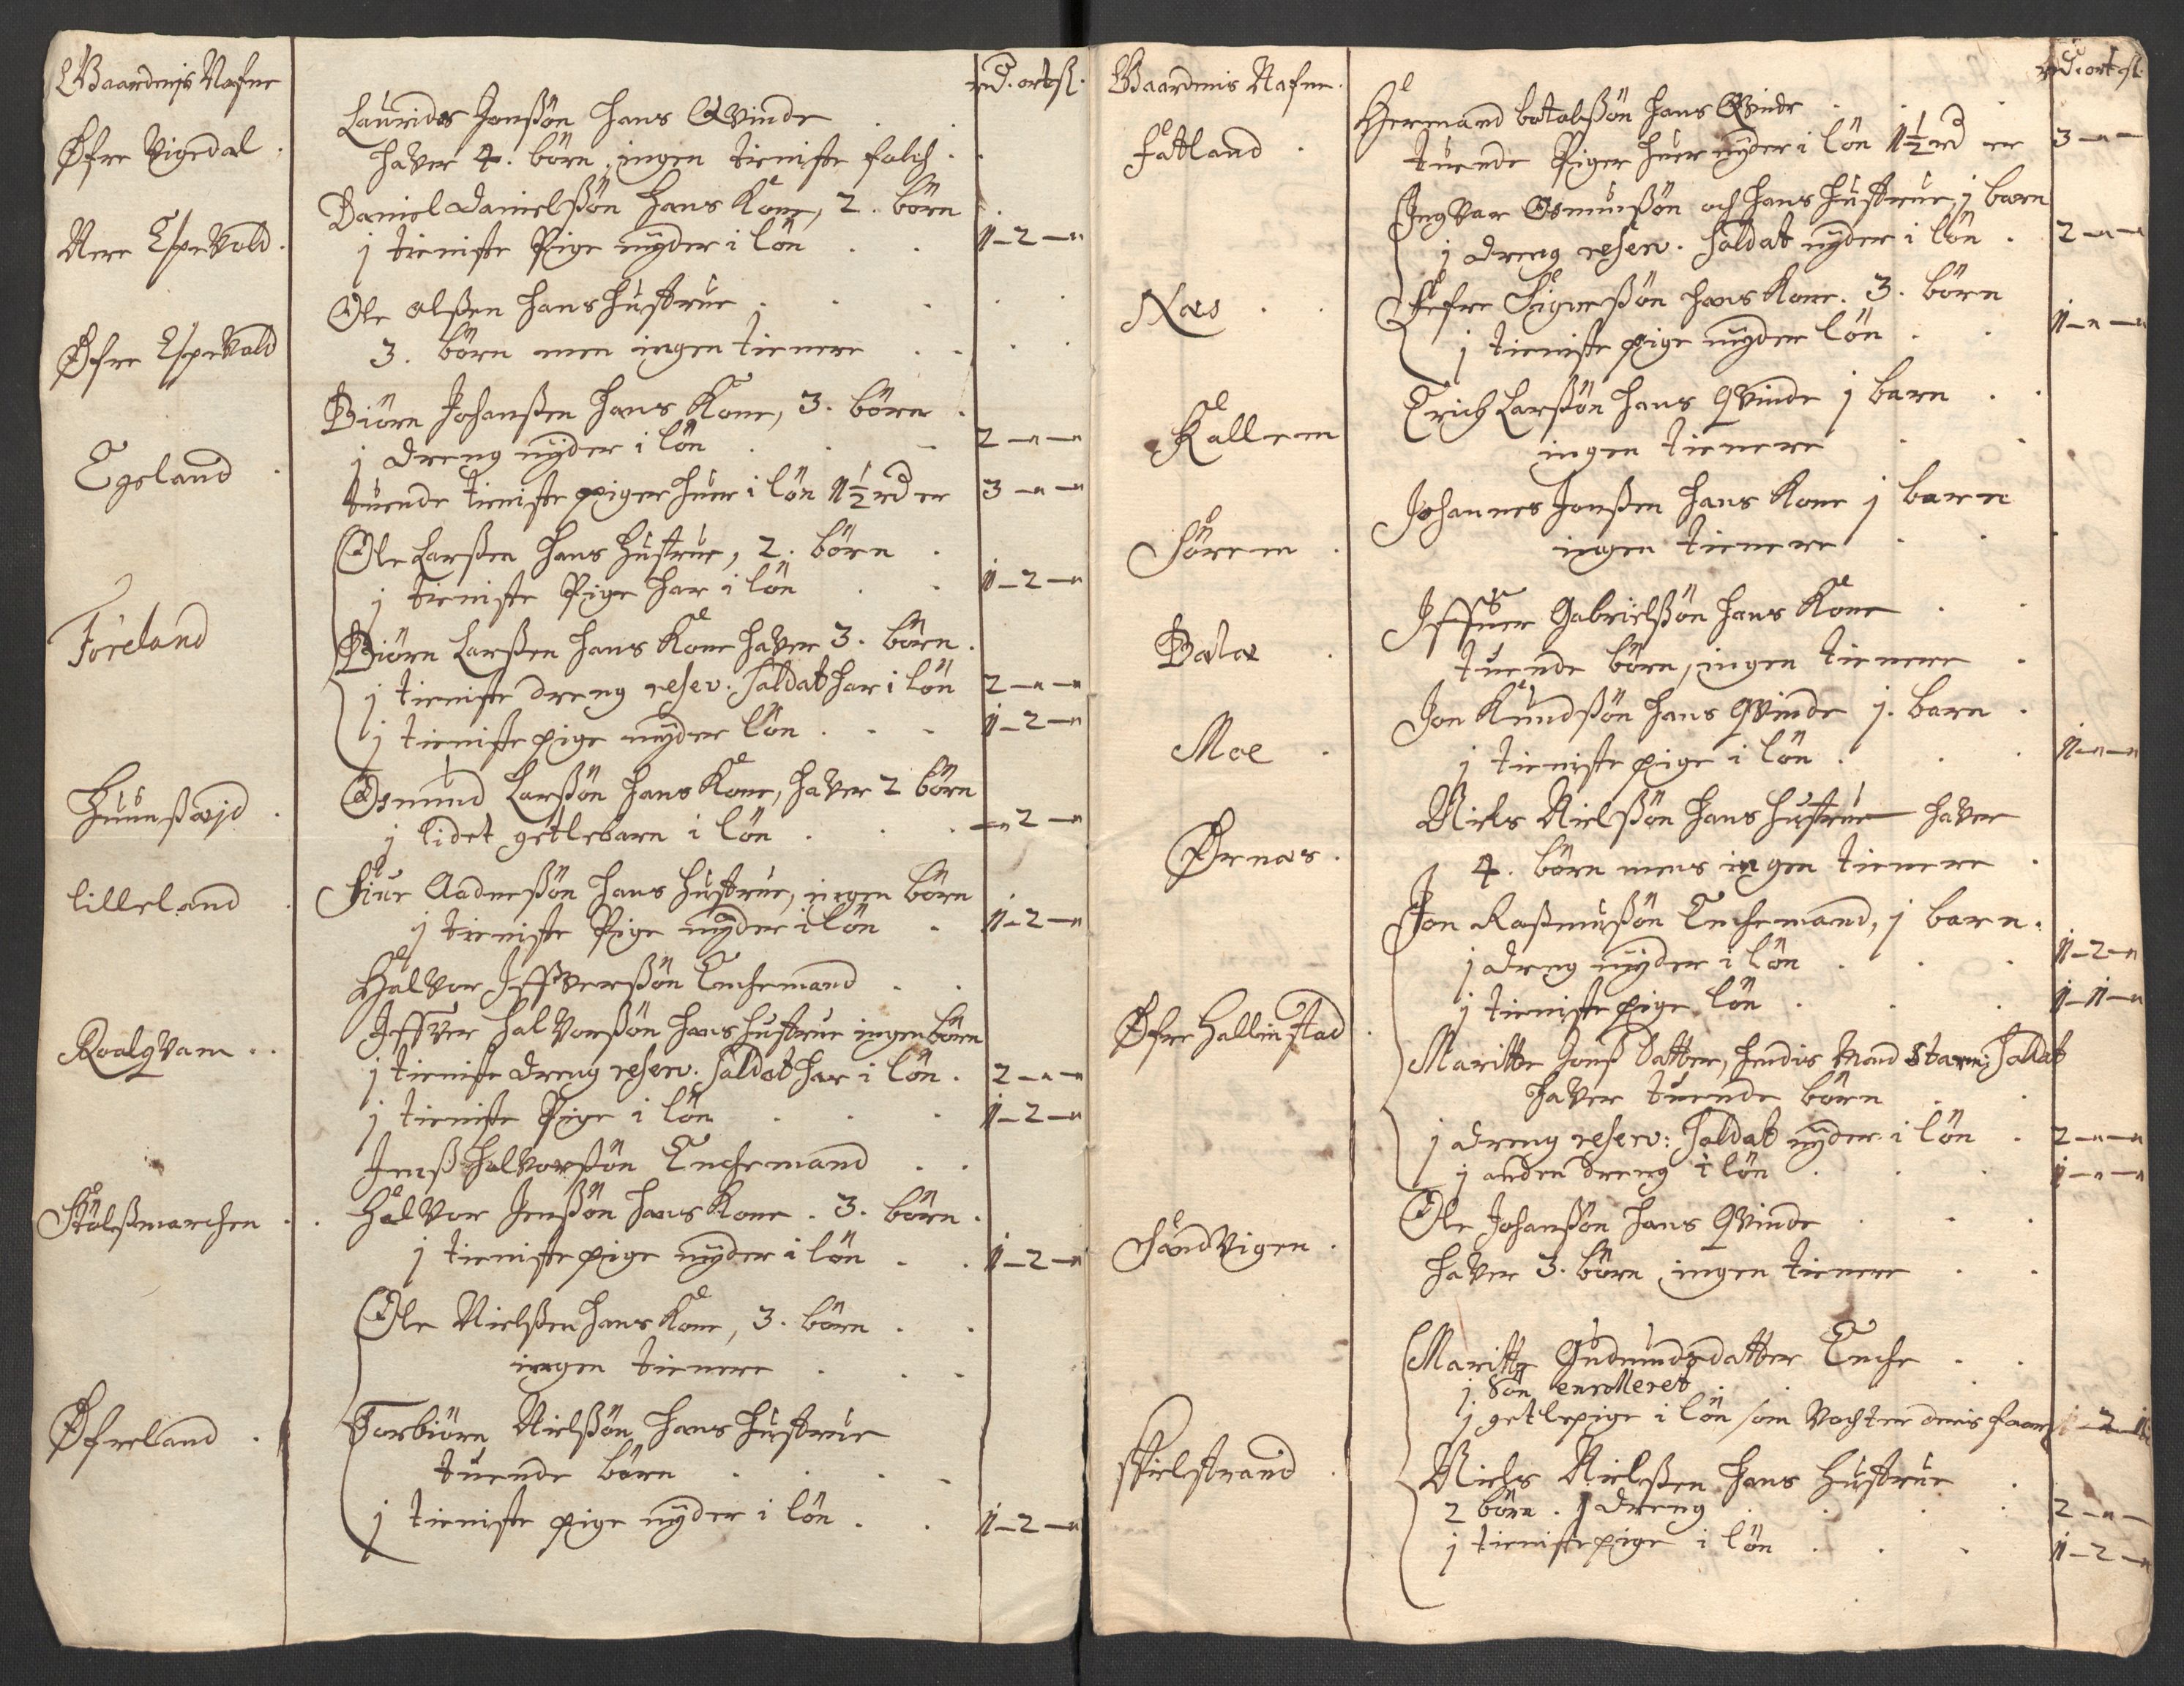 Gaardenis Nafne
rd. ort ß.
Øfre Vigedal .
Laurids Jonßøn hans Qvinde
haver 4. børn, ingen tieniste folch .
Nere Espevold .
Daniel Danielßøn hans Kone, 2. børn
j tieniste Pige nyder i løn . . 1–2–"
Øfre Espevold
Ole Olßen hans hustrue .
3. børn men ingen tienere . .
Egeland .
Biørn Johanßen hans Kone, 3. børn .
j dreng nyder i løn . . 2–"–"
tuende tieniste piger huer i løn 1½ rd er 3–"–"
Føreland
Ole Larßen hans hustrue, 2. børn .
j tieniste Pige har i løn . . 1–2–"
Biørn Larßen hans Kone haver 3. børn .
j tieniste dreng reserv. Saldat har i løn 2–"–"
j tieniste pige nyder løn . . . 1–2–"
Osmund Larßøn hans Kone, haver 2 børn
j lidet getlebarn i løn . . . "–2–"
lilleland .
Siur Aadneßøn hans hustrue, ingen børn
j tieniste Pige nyder i løn . 1–2–"
Roalqvam . .
Halvor Iffverßøn Enchemand . .
Iffver Halvorßøn hans hustrue ingen børn
j tieniste dreng reserv. Saldat har i løn . 2–"–"
j tieniste Pige i løn . . . 1–2–"
Stølßmarchen .
Jenß Halvorßøn Enchemand . .
Halvor Jenßøn hans Kone . 3. børn .
j tieniste pige nyder i løn . . 1–2–"
Øfreland .
Ole Nielßen hans Kone, 3. børn . .
ingen tienere . . .
Torbiørn Nielßøn hans hustrue
tuende børn . . . .
j tieniste pige nyder i løn . . 1–2–"
Gaardenis Nafne .
rd. ort ß.
Fatland .
Hermand hans Qvinde
tuende Piger huer nyder i løn 1½ rd er 3–"–
Ingvar Osmunßøn och hans hustrue, j barn
j dreng reserv. Saldat nyder i løn . 2–"–"
Næs . .
hans Kone . 3. børn
j tieniste pige nyder løn . . 1–"–"
Kallem
Erich Larßøn hans Qvinde j barn . .
ingen tienere . .
Sørem .
Johannes Jonßen hans Kone j barn
ingen tienere . . .
Bala .
Iffuer Gabrielßøn hans Kone . .
tuende børn, ingen tienere .
Moe .
Jon Knudßøn hans Qvinde j. barn .
j tieniste pige i løn . . . 1–"–"
Ørnæs .
Niels Nielßøn hans hustrue haver
4. børn mens ingen tienere .
Øfre Hallinstad .
Jon Raßmusßøn Enchemand, j barn .
j dreng nyder i løn . . . 1–2–"
j tieniste pige løn . . . 1–1–"
Maritte Jonß Datter, hendis Mand Saldat
haver tuende børn . .
j dreng reserv: Saldat nyder i løn . 2–"–"
j anden dreng i løn . . . 1–"–"
Sandvigen .
Ole Johanßøn hans Qvinde . . .
haver 3. børn, ingen tienere . .
Fielstrand .
Maritte Gudmundsdatter Enche . .
j Søn enrolleret .
j getlepige i løn som Vochter deris faar
Niels Nielßen hans hustrue .
2 børn . j dreng . . . 2–"–
j tieniste pige i løn . . . 1–2–"